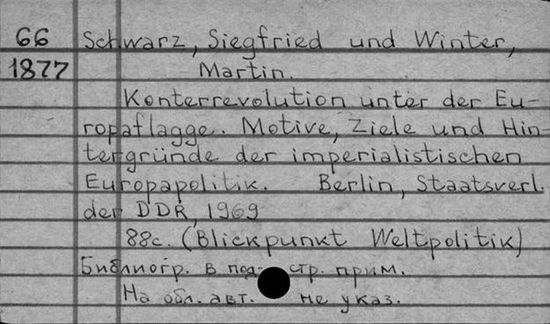 66 Schwarz, Siegfried und Winter,
1877 Martin.
Konterrevolution unter der Eu-
ropaflagge. Motive, Ziele und Hin-
tergründe der imperialistischen
Europapolitik. Berlin, Staatsverl.
der DDR, 1969
88c. (Blickpunkt Weltpolitik)
Библиогр. в под- стр. прим.
На обл. авт. не указ.